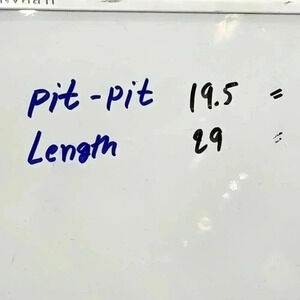 pit-pit 19.5 =
Length 29 =